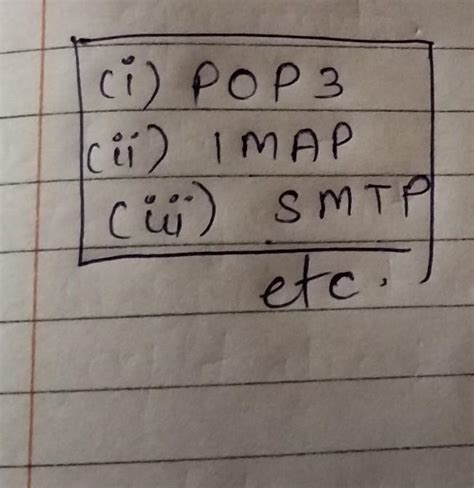 (i) POP3
(ii) IMAP
(iii) SMTP
etc.